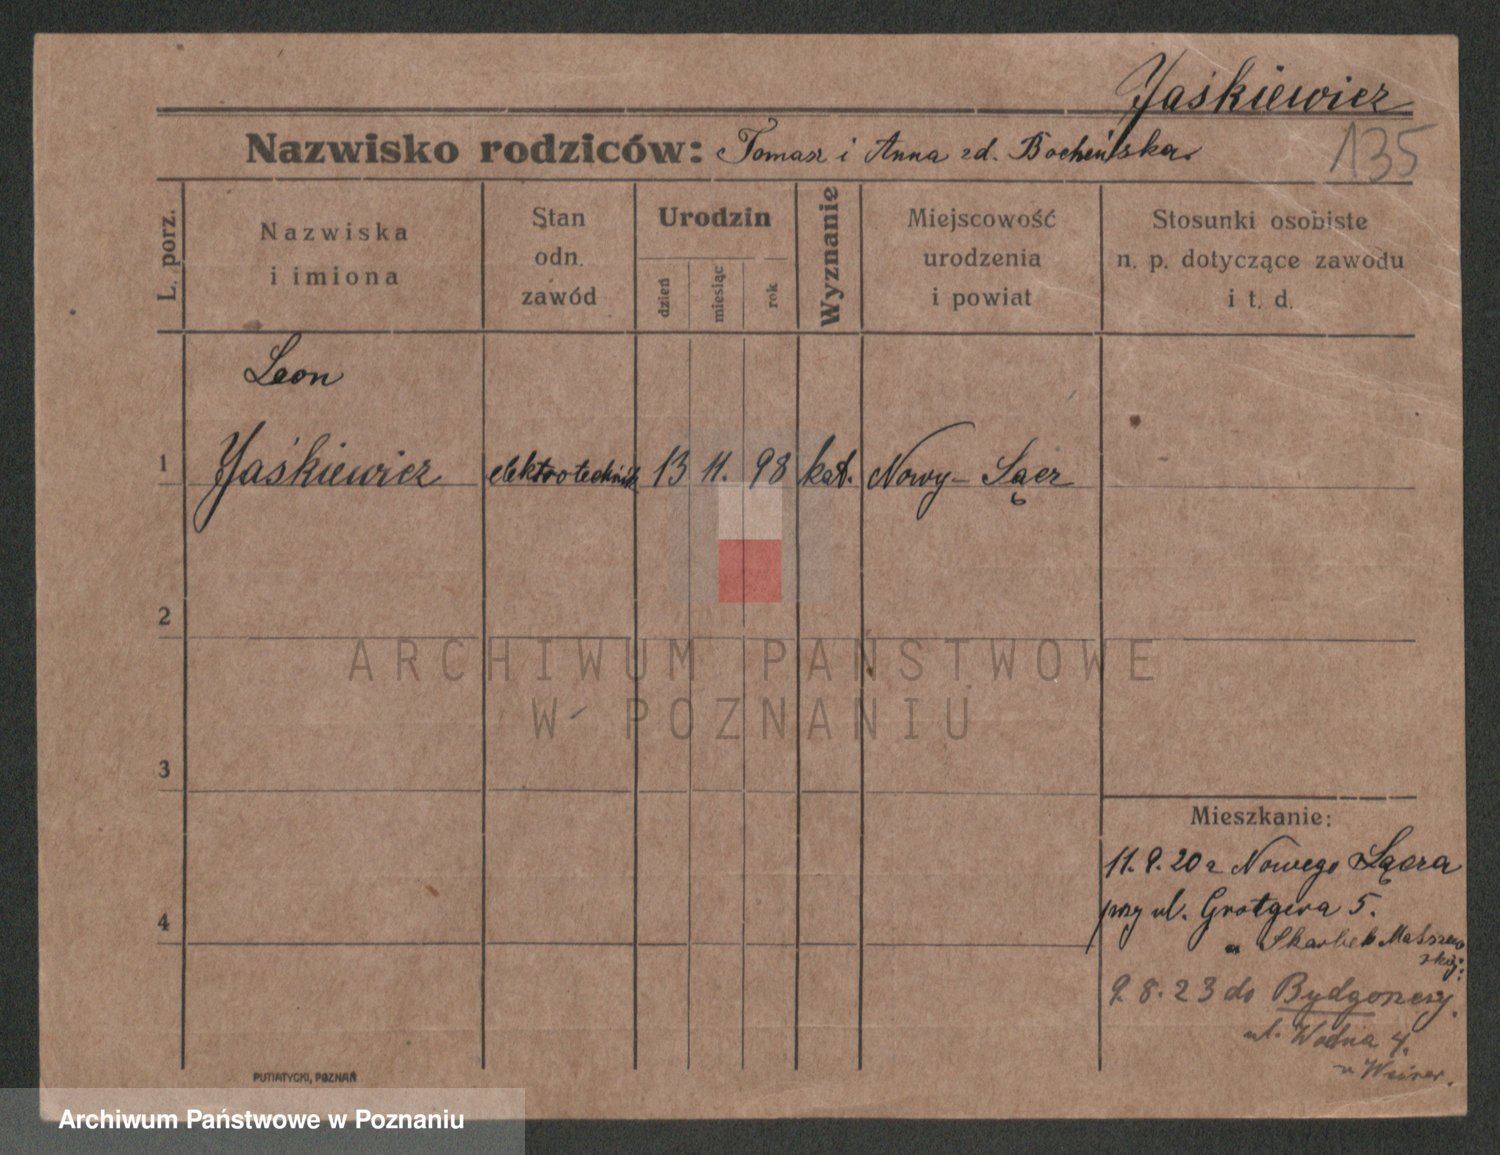 Jaśkiewicz
Nazwisko rodziców: Tomasz i Anna zd. Bocheńska
135
L. porz.
Nazwiska
i imiona
Stan
odn.
zawód
Urodzin
dzień
miesiąc
rok
Wyznanie
Miejscowość
urodzenia
i powiat
Stosunki osobiste
n. p. dotyczące zawodu
i t. d.
Leon
1 Jaśkiewicz elektrotechnik 13 11. 98 kat. Nowy-Sącz
2
ARCHIWUM PAŃSTWOWE
W POZNANIU
3
Mieszkanie:
11.9.20 z Nowego Sącza
4
przy ul. Grotgera 5.
Skarbek
9.8.23 do Bydgoszczy.
ul. Wodna 4.
PUTIATYCKI, POZNAŃ
Archiwum Państwowe w Poznaniu